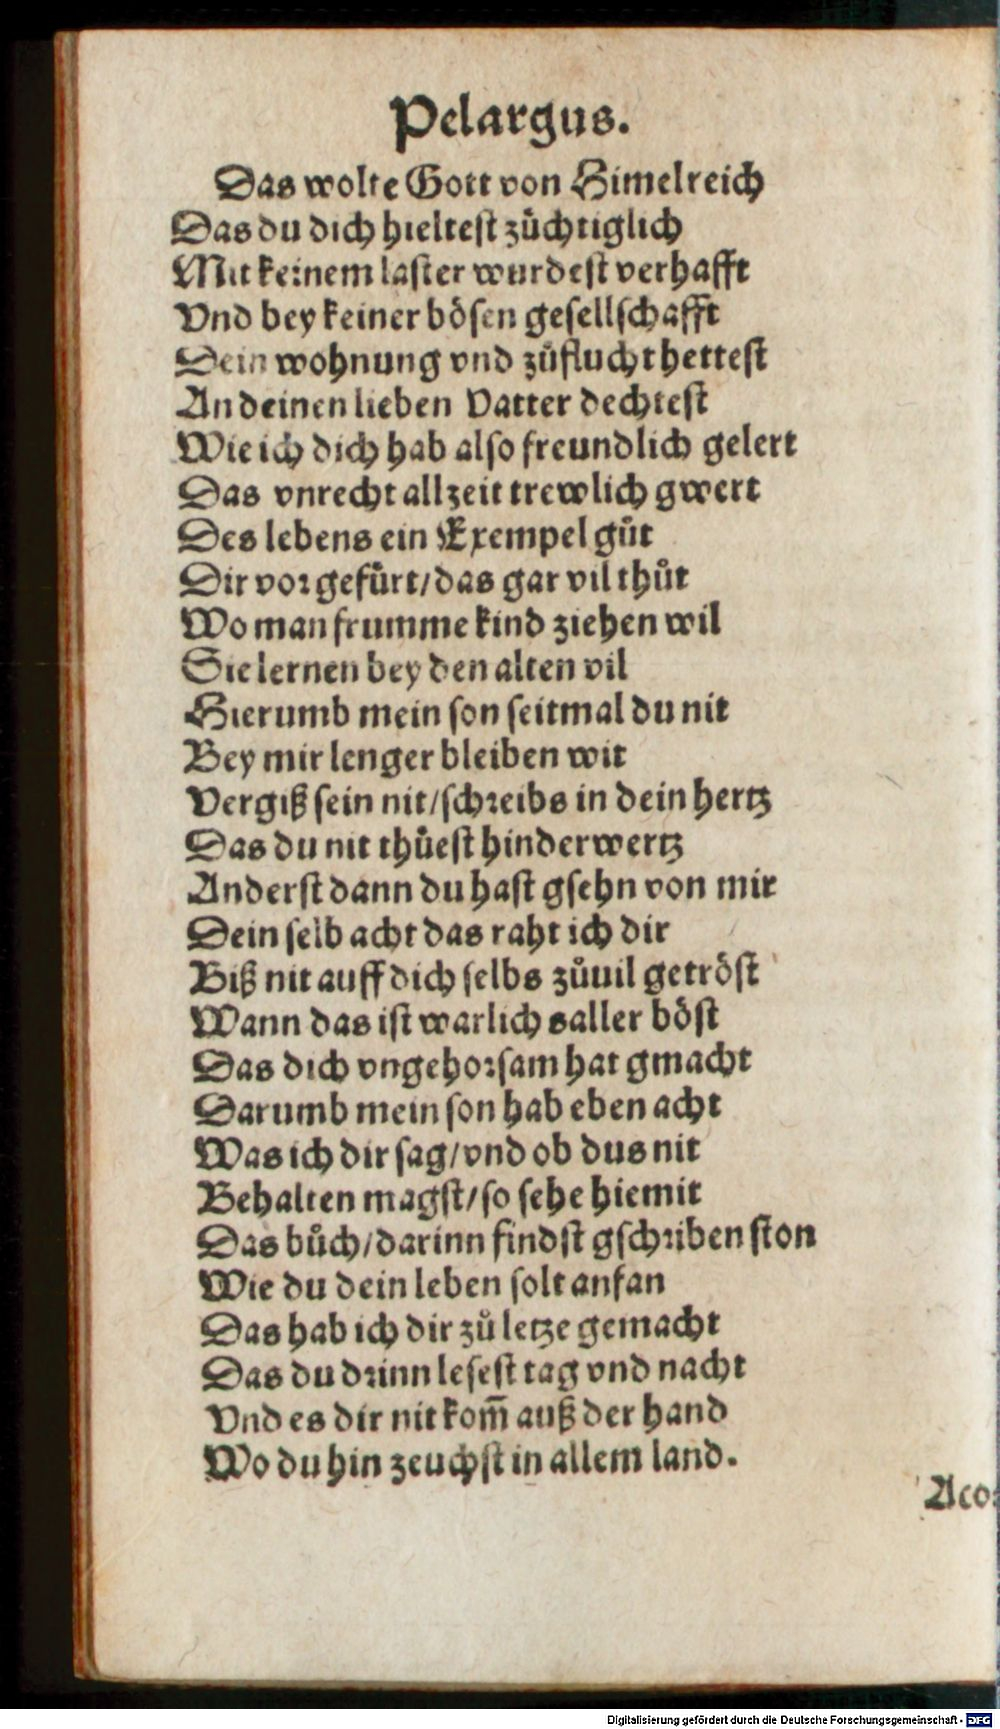 Pelargus.
Das wolte Gott von Himelreich
Das du dich hieltest zůchtiglich
Mit keinem laster wurdest verhafft
Vnd bey keiner bösen gesellschafft
Dein wohnung vnd zůflucht hettest
An deinen lieben Vatter dechtest
Wie ich dich hab also freundlich gelert
Das vnrecht allzeit trewlich gwert
Des lebens ein Exempel gůt
Dir vorgefürt/das gar vil thůt
Wo man frumme kind ziehen wil
Sie lernen bey den alten vil
Hierumb mein son seitmal du nit
Bey mir lenger bleiben wit
Vergiß sein nit/schreibs in dein hertz
Das du nit thüest hinderwertz
Anderst dann du hast gsehn von mir
Dein selb acht das raht ich dir
Biß nit auff dich selbs zůuil getröst
Wann das ist warlich saller böst
Das dich vngehorsam hat gmacht
Darumb mein son hab eben acht
Was ich dir sag/vnd ob dus nit
Behalten magst/so sehe hiemit
Das bůch/darinn findst gschriben ston
Wie du dein leben solt anfan
Das hab ich dir zů letze gemacht
Das du drinn lesest tag vnd nacht
Vnd es dir nit kom̄ auß der hand
Wo du hin zeuchst in allem land.
Aco⸗
Digitalisierung gefördert durch die Deutsche Forschungsgemeinschaft - DFG